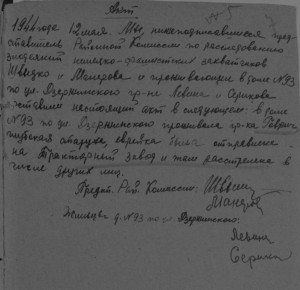 Акт
194 года 12 мая. Мы, нижеподписавшиеся пред-
ставитель Районной Комиссии по расследованию
злодеяний немецко-фашистских захватчиков
Швыдко и и проживающие в доме №93
по ул. Дзержинского гр-не Левина и
составили настоящий акт в следующем: в доме
№93 по ул. Дзержинского проживала гр-ка
старуха, еврейка была отправлена
на Тракторный завод и там расстреляна в
числе других лиц.
Предст. Рай. Комиссии:
Жильцы д. №93 по ул. Дзержинского:
Левина